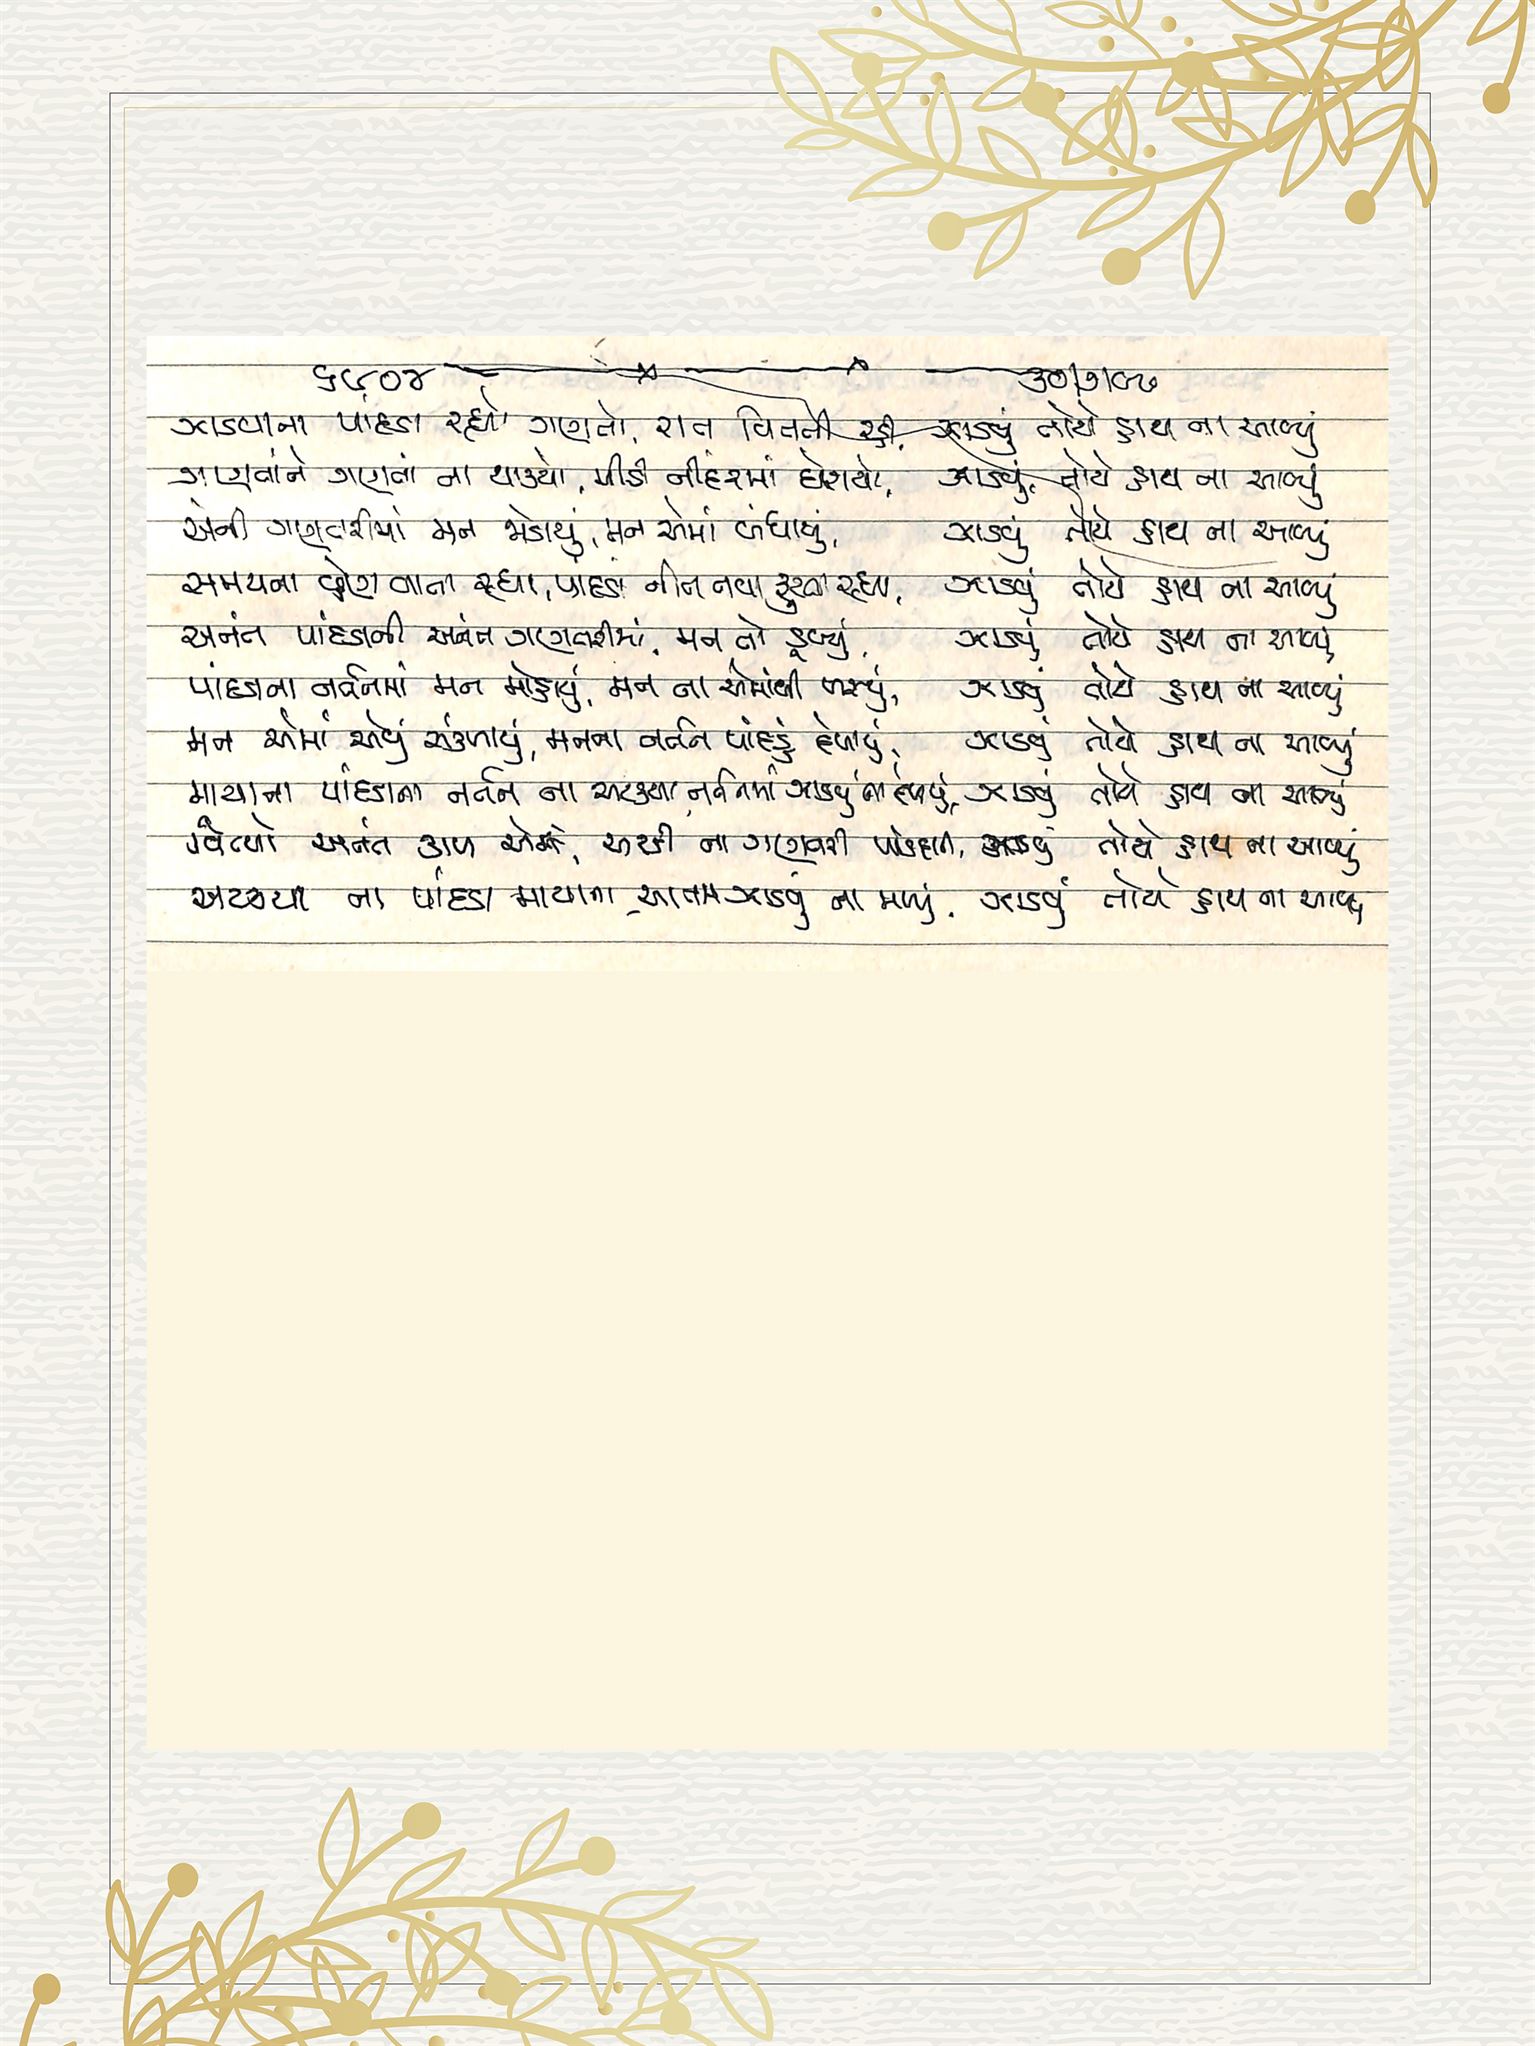 ૬૯૦૪ ૩૦/૭/૯૮
ઝાડવાના પાંદડા રહ્યો ગણતો, રાત વિતતી રહી, ઝાડવું તોયે હાથ ના આવ્યું
ગણતાંને ગણતાં ના થાક્યો, મીઠી નીંદરમાં ઘેરાયો, ઝાડવું તોયે હાથ ના આવ્યું
એની ગણતરીમાં મન જોડાયું, મન એમાં બંધાયું, ઝાડવું તોયે હાથ ના આવ્યું
સમયના વ્હેણ વાતા રહ્યા, પાંદડાં નીત નવા ફૂટતા રહ્યા, ઝાડવું તોયે હાથ ના આવ્યું
અનંત પાંદડાની અનંત ગણતરીમાં, મન તો ડૂબ્યું, ઝાડવું તોયે હાથ ના આવ્યું
પાંદડાના નર્તનમાં મન મોહાયું, મન ના એમાંથી ખસ્યું, ઝાડવું તોયે હાથ ના આવ્યું
મન એમાં એવું સંકળાયું, મનના નર્તન પાંદડું દેખાયું, ઝાડવું તોયે હાથ ના આવ્યું
માયાના પાંદડાના નર્તન ના અટક્યા, નર્તનમાં ઝાડવું ના દેખાયું, ઝાડવું તોયે હાથ ના આવ્યું
વિત્યો અનંત કાળ એમાં, અટકી ના ગણતરી પાંદડાની, ઝાડવું તોયે હાથ ના આવ્યું
અટક્યા ના પાંદડા માયાના, આતમઝાડવું ના મળ્યું, ઝાડવું તોયે હાથ ના આવ્યું